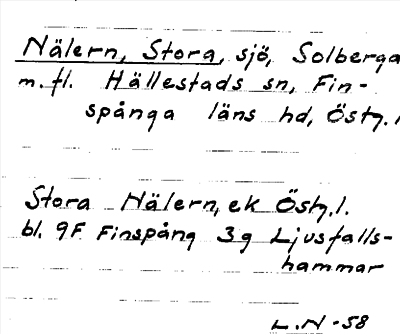 Nälern, Stora, sjö, Solberga
m. fl. Hällestads sn, Fin-
spånga läns hd, Östg. l
Stora Nälern, ek Östg. l.
bl. 9F Finspång 3g Ljusfalls-
hammar
L.N -58